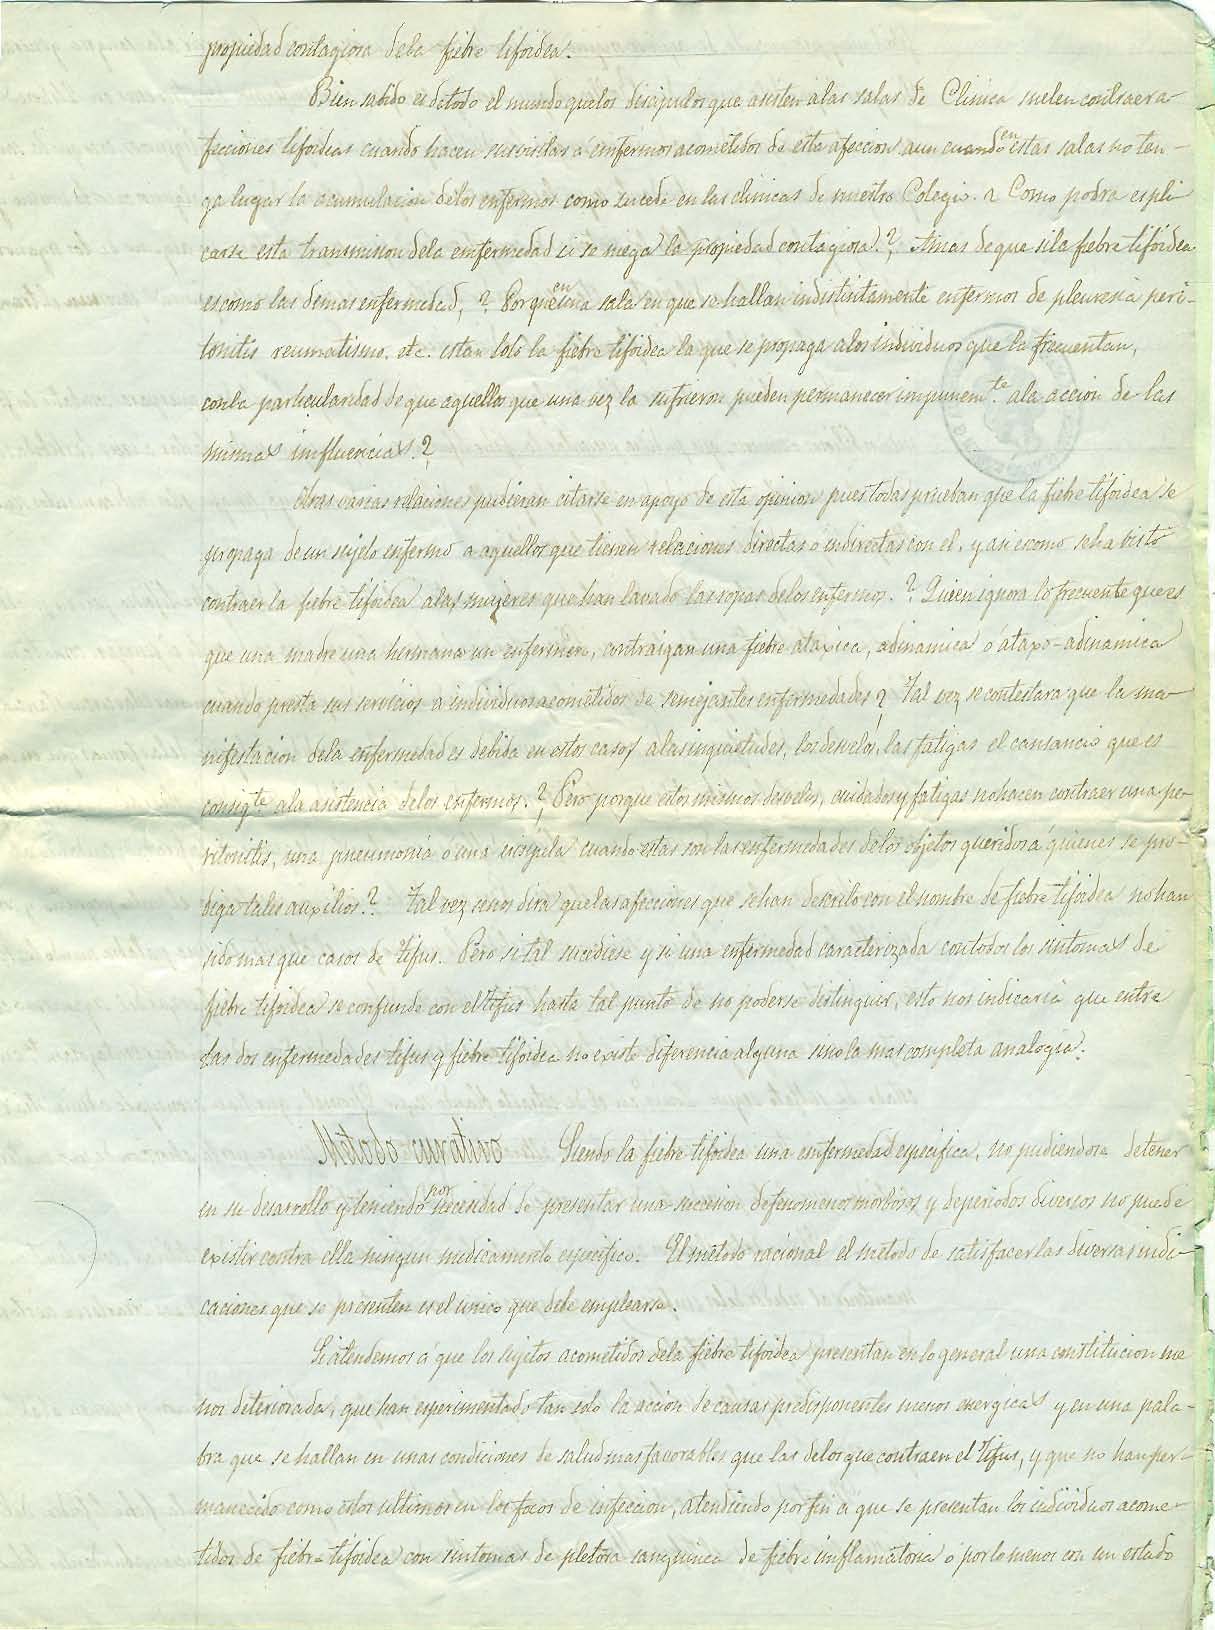 propiedad contagiosa dela fiebre tifoidea.
Bien sabido es detodo el mundo quelos discipulos que asisten alas salas de Clinica suelen contraer a-
fecciones tifoideas cuando hacen sus visitas á enfermos acometidos de esta afeccion aun cuando en estas salas no ten-
ga lugar la acumulacion delos enfermos como sucede en las clinicas de nuestro Colegio. ¿ Como podra espli
carse esta transmision dela enfermedad si se niega la propiedad contagiosa.? Amas de que si la fiebre tifoidea
es como las demas enfermedad, ? Porque en una sala en que se hallan indistintamente enfermos de pleuresia peri-
tonitis reumatismo. etc. es tan solo la fiebre tifoidea la que se propaga a los individuos que la frecuentan,
con la particularidad de que aquellos que una vez la sufrieron pueden permanecer impunemte. ala accion de las
mismas influencias.?
Otras varias relaciones pudieran citarse en apoyo de esta opinion pues todas prueban que la fiebre tifoidea se
propaga de un sujeto enfermo a aquellos que tienen relaciones directas o indirectas con el. y asi es como se ha bisto
contraer la fiebre tifoidea alas mujeres que han lavado las ropas delos enfermos. ? Quien ignora lo frecuente que es
que una madre una hermana un enfermero, contraigan una fiebre ataxica, adinamica ó ataxo-adinamica
cuando presta sus servicios a individuos acometidos de semejantes enfermedades? Tal vez se contestara que la ma-
nifestacion dela enfermedad es debida en estos casos alas inquietudes, los desvelos, las fatigas el cansancio que es
consigte ala asistencia delos enfermos. ? Pero porque estos mismos desvelos, cuidados y fatigas no hacen contraer una pe-
ritonitis, una pneumonia ó una erisipela cuando estas son las enfermedades delos objetos queridos á quienes se pro-
diga tales auxilios.? Tal vez senos dira que las afecciones que sehan descrito con el nombre de fiebre tifoidea no han
sido mas que casos de tifus. Pero si tal sucediese y si una enfermedad caracterizada con todos los sintomas de
fiebre tifoidea se confunde con el tifus hasta tal punto de no poderse distinguir, esto nos indicaria que entre
las dos enfermedades tifus y fiebre tifoidea no existe diferencia alguna sino la mas completa analogia.
Método curativo Siendo la fiebre tifoidea una enfermedad especifica, no pudiendose detener
en su desarrollo y teniendo por necesidad de presentar una succesion de fenomenos morbosos y de periodos diversos no puede
existir contra ella ningun medicamento especifico. El método racional el metodo de satisfacer las diversas indi-
caciones que se presenten es el unico que debe emplearse.
Si atendemos á que los sujetos acometidos dela fiebre tifoidea presentan en lo general una constitucion me
nos deteriorada, que han esperimentado tan solo la accion de causas predisponentes menos energicas y en una pala-
bra que se hallan en unas condiciones de salud mas favorables que las delos que contraen el Tifus, y que no han per-
manecido como estos ultimos en los focos de infeccion, atendiendo por fin á que se presentan los individuos acome-
tidos de fiebre tifoidea con sintomas de pletora sanguinea de fiebre inflamatoria ó por lo menos con un estado